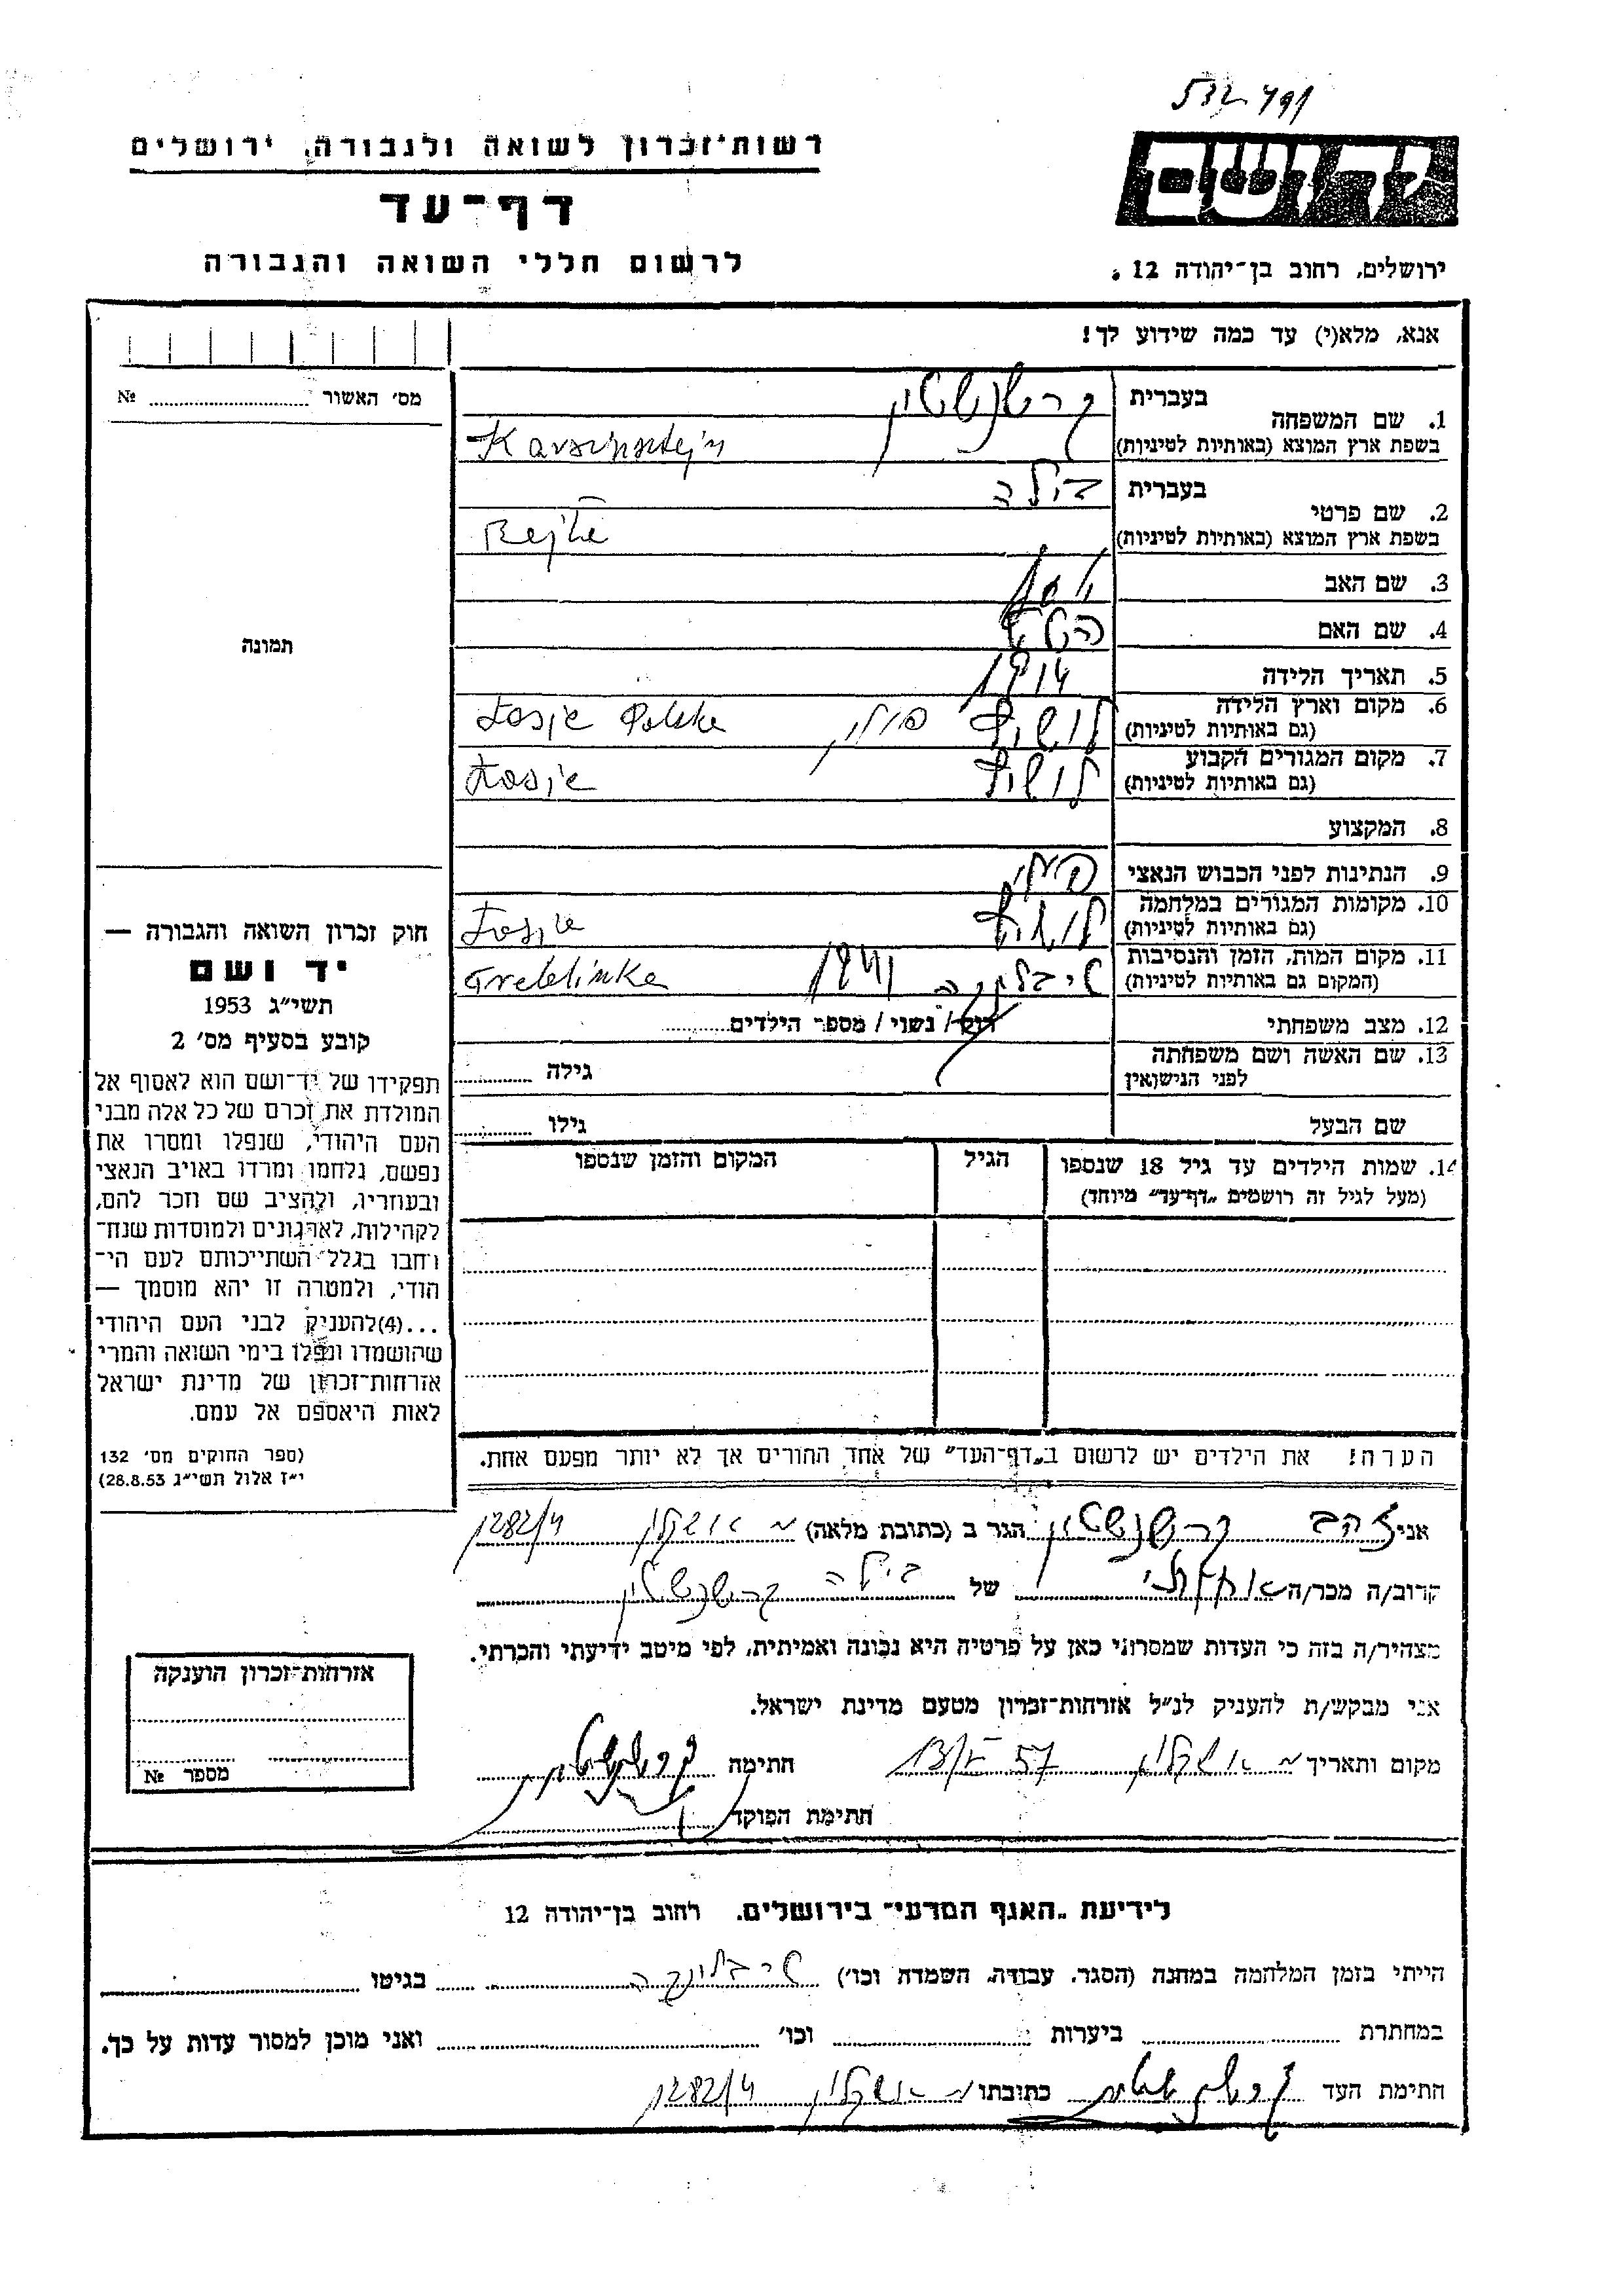 532-491
יד ושם
רשות־זכרון לשואה ולגבורה, ירושלים
דף־עד
לרשום חללי השואה והגבורה
ירושלים, רחוב בן־יהודה 12.
אנא, מלא(י) עד כמה שידוע לך!
מס׳ האשור № 
1. שם המשפחה בעברית קרשנשטין
בשפת ארץ המוצא (באותיות לטיניות) Karschsztejn
2. שם פרטי בעברית בילה
בשפת ארץ המוצא (באותיות לטיניות) Bejla
3. שם האב יוסף
4. שם האם
5. תאריך הלידה 1914
6. מקום וארץ הלידה לושיץ פולין Łosjże Polska
(גם באותיות לטיניות)
7. מקום המגורים הקבוע לושיץ
(גם באותיות לטיניות)
8. המקצוע
9. הנתינות לפני הכבוש הנאצי פולני
10. מקומות המגורים במלחמה לושיץ
(גם באותיות לטיניות)
11. מקום המות, הזמן והנסיבות טריבלינקה 1941 Treblinka
(המקום גם באותיות לטיניות)
12. מצב משפחתי רווק / נשוי / מספר הילדים
13. שם האשה ושם משפחתה גילה
לפני הנישואין
שם הבעל גילו
14. שמות הילדים עד גיל 18 שנספו הגיל המקום והזמן שנספו
(מעל לגיל זה רושמים „דף־עד״ מיוחד)
הערה! את הילדים יש לרשום ב„דף־העד״ של אחד ההורים אך לא יותר מפעם אחת.
תמונה
חוק זכרון השואה והגבורה —
יד ושם
תשי״ג 1953
קובע בסעיף מס׳ 2
תפקידו של יד־ושם הוא לאסוף אל
המולדת את זכרם של כל אלה מבני
העם היהודי, שנפלו ומסרו את
נפשם, נלחמו ומרדו באויב הנאצי
ובעוזריו, ולהציב שם וזכר להם,
לקהילות, לארגונים ולמוסדות שנח־
רחבו בגלל השתייכותם לעם הי־
הודי, ולמטרה זו יהא מוסמך —
...(4)להעניק לבני העם היהודי
שהושמדו ונפלו בימי השואה והמרי
אזרחות־זכרון של מדינת ישראל
לאות היאספם אל עמם.
(ספר החוקים מס׳ 132
י״ז אלול תשי״ג 28.8.53)
אני זהב קרשנשטין הגר ב (כתובת מלאה) אשקלון 1282/4
קרוב/ה מכר/ה אחותי של בילה קרשנשטין
מצהיר/ה בזה כי העדות שמסרתי כאן על פרטיה היא נכונה ואמיתית, לפי מיטב ידיעתי והכרתי.
אני מבקש/ת להעניק לנ״ל אזרחות־זכרון מטעם מדינת ישראל.
מקום ותאריך אשקלון 57 חתימה קרשנשטין
חתימת הפוקד
אזרחות־זכרון הוענקה
מספר №
לידיעת „האגף המדעי״ בירושלים. רחוב בן־יהודה 12
הייתי בזמן המלחמה במחנה (הסגר, עבודה, השמדה וכו׳) טריבלינקה בגיטו
במחתרת ביערות וכו׳ ואני מוכן למסור עדות על כך.
חתימת העד קרשנשטין כתובתו אשקלון 1282/4